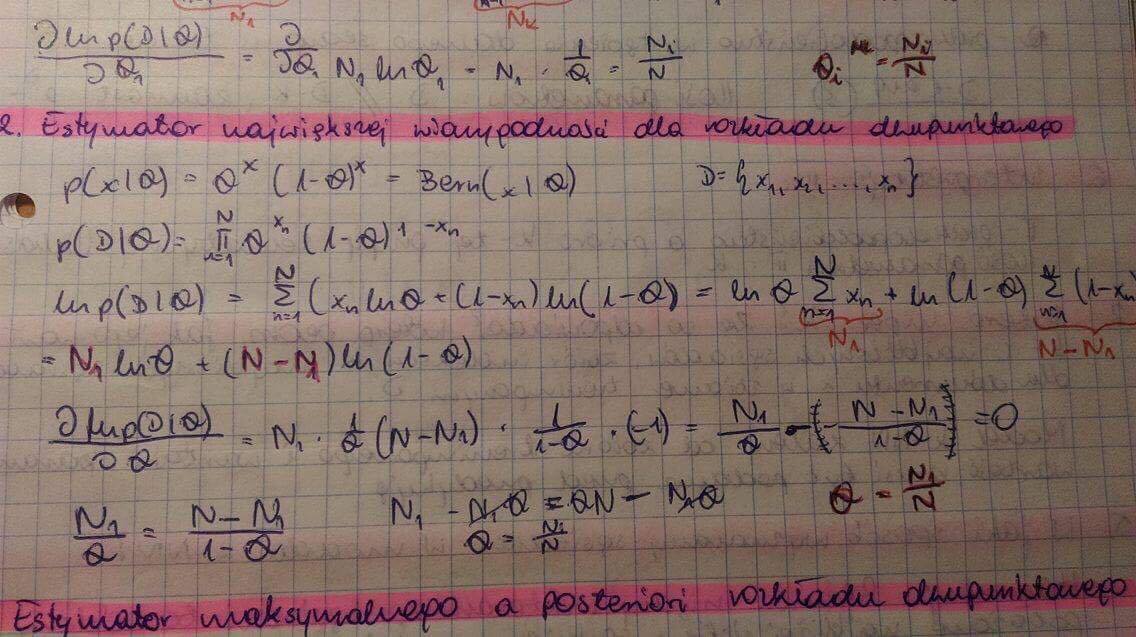 N₁ N_K
∂ ln p(D|θ) / ∂θ₁ = ∂/∂θ₁ N₁ ln θ₁ = N₁ · 1/θ₁ = Nᵢ/N θᵢ^ML = Nᵢ/N
2. Estymator największej wiarygodności dla rozkładu dwupunktowego
p(x|θ) = θ^x (1-θ)^x = Bern(x|θ) D = {x₁, x₂, ..., xₙ}
p(D|θ) = ∏_{n=1}^{N} θ^{xₙ} (1-θ)^{1-xₙ}
ln p(D|θ) = Σ_{n=1}^{N} (xₙ ln θ + (1-xₙ) ln(1-θ) = ln θ Σ_{n=1}^{N} xₙ + ln(1-θ) Σ_{n=1}^{N} (1-xₙ)
N₁ N-N₁
= N₁ ln θ + (N-N₁) ln(1-θ)
∂ ln p(D|θ) / ∂θ = N₁ · 1/θ (N-N₁) · 1/(1-θ) · (-1) = N₁/θ - (N-N₁)/(1-θ) = 0
N₁/θ = (N-N₁)/(1-θ) N₁ - N₁θ = θN - N₁θ θ = N₁/N
θ = N₁/N
Estymator maksymalnego a posteriori rozkładu dwupunktowego